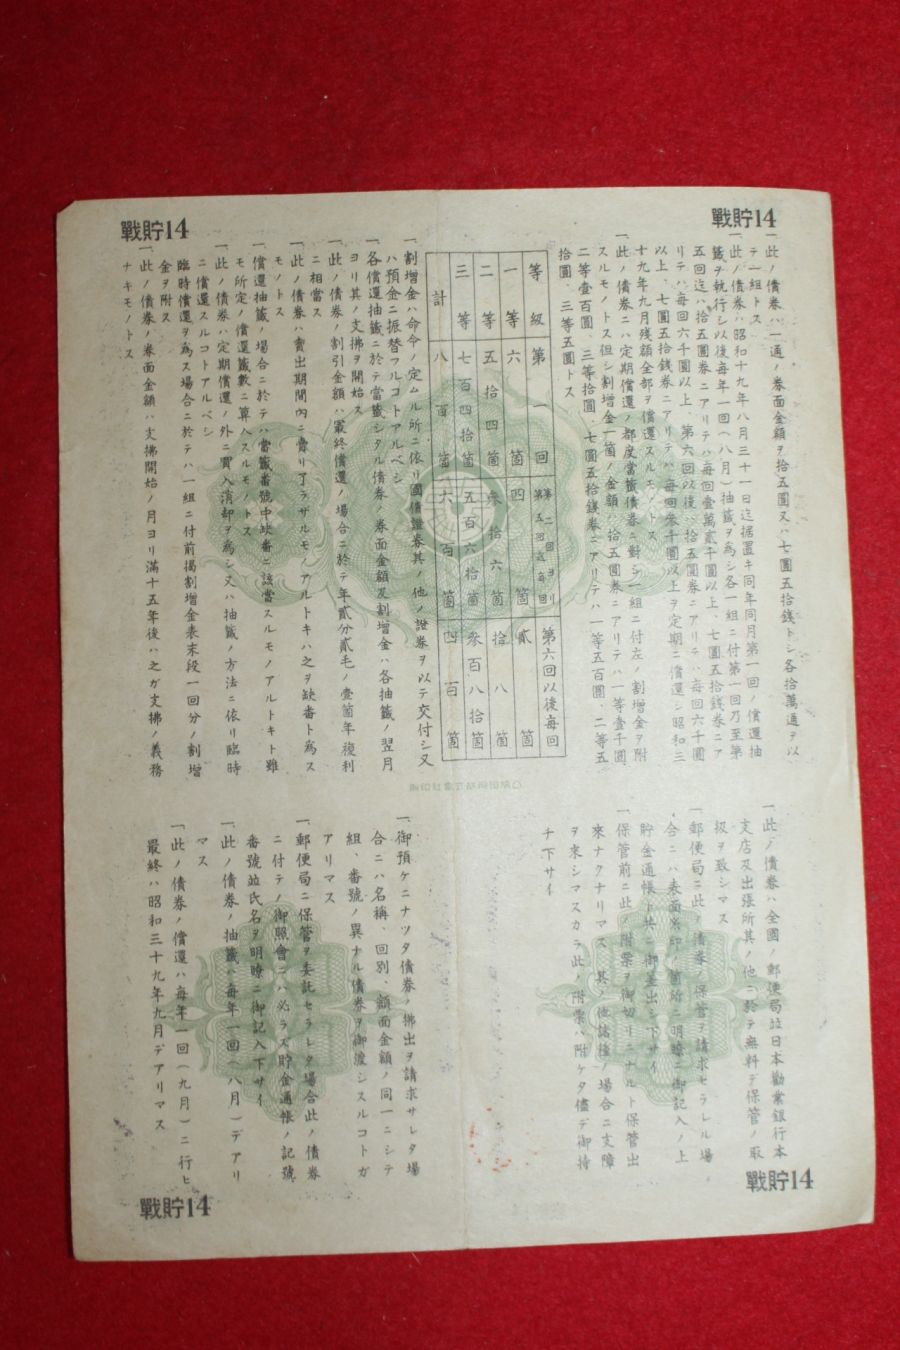 戰貯14
戰貯14
一、此ノ債券ハ一通ノ券面金額ヲ拾五圓又ハ七圓五拾錢トシ各拾萬通ヲ以
テ一組トス
一、此ノ債券ハ昭和十九年八月三十一日迄据置キ同年同月第一回ノ償還抽
籤ヲ執行シ以後每年一回(八月)抽籤ヲ爲シ各一組ニ付第一回乃至第
五回迄ハ拾五圓券ニアリテハ每回壹萬貳千圓以上、七圓五拾錢券ニア
リテハ每回六千圓以上、第六回以後ハ拾五圓券ニアリテハ每回六千圓
以上、七圓五拾錢券ニアリテハ每回參千圓以上ヲ定期ニ償還シ昭和三
十九年九月殘額全部ヲ償還スルモノトス
一、此ノ債券ニハ定期償還ノ都度當籤債券ニ對シ一組ニ付左ノ割增金ヲ附
スルモノトス但シ割增金一箇ノ金額ハ拾五圓券ニアリテハ一等壹千圓、
二等壹百圓、三等拾圓、七圓五拾錢券ニアリテハ一等五百圓、二等五
拾圓、三等五圓トス
等級 第一回 第二回ヨリ第五回迄每回 第六回以後每回
一等 六箇 四箇 貳箇
二等 五拾四箇 參拾六箇 拾八箇
三等 七百四拾箇 五百六拾箇 參百八拾箇
計 八百箇 六百箇 四百箇
一、割增金ハ命令ノ定ムル所ニ依リ國債證券其ノ他ノ證券ヲ以テ交付シ又
ハ預金ニ振替フルコトアルベシ
一、各償還抽籤ニ於テ當籤シタル債券ノ券面金額及割增金ハ各抽籤ノ翌月
ヨリ其ノ支拂ヲ開始ス
一、此ノ債券ノ割引金額ハ最終償還ノ場合ニ於テ年貳分貳毛ノ壹箇年複利
ニ相當ス
一、此ノ債券ハ賣出期間內ニ賣リ了ラザルモノアルトキハ之ヲ缺番ト爲ス
モノトス
一、償還抽籤ノ場合ニ於テハ當籤番號中缺番ニ該當スルモノアルトキト雖
モ所定ノ償還籤數ニ算入スルモノトス
一、此ノ債券ハ定期償還ノ外ニ買入消却ヲ爲シ又ハ抽籤ノ方法ニ依リ臨時
ニ償還スルコトアルベシ
臨時償還ヲ爲ス場合ニ於テハ一組ニ付前揭割增金表末段一回分ノ割增
金ヲ附ス
一、此ノ債券ノ券面金額ハ支拂開始ノ月ヨリ滿十五年後ハ之ガ支拂ノ義務
ナキモノトス
一、此ノ債券ハ全國ノ郵便局竝日本勸業銀行本
支店及出張所其ノ他ニ於テ無料デ保管ノ取
扱ヲ致シマス
一、郵便局ニ此ノ債券ノ保管ヲ請求セラレル場
合ニハ表面ノ箇所ニ明瞭ニ御記入ノ上
貯金通帳ト共ニ御差出シ下サイ
一、保管前ニ此ノ附票ヲ御切リニナルト保管出
來ナクナリマス、其ノ他諸種ノ場合ニ支障
ヲ來シマスカラ此ノ附票ハ附ケタ儘デ御持
チ下サイ
一、御預ケニナツタ債券ノ拂出ヲ請求サレタ場
合ニハ名稱、回別、額面金額ノ同一ニシテ
組、番號ノ異ナル債券ヲ御渡シスルコトガ
アリマス
一、郵便局ニ保管ヲ委託セラレタ場合此ノ債券
ニ付テノ御照會ニハ必ラズ貯金通帳ノ記號
番號竝氏名ヲ明瞭ニ御記入下サイ
一、此ノ債券ノ抽籤ハ每年一回(八月)デアリ
マス
一、此ノ債券ノ償還ハ每年一回(九月)ニ行ヒ
最終ハ昭和三十九年九月デアリマス
戰貯14
戰貯14